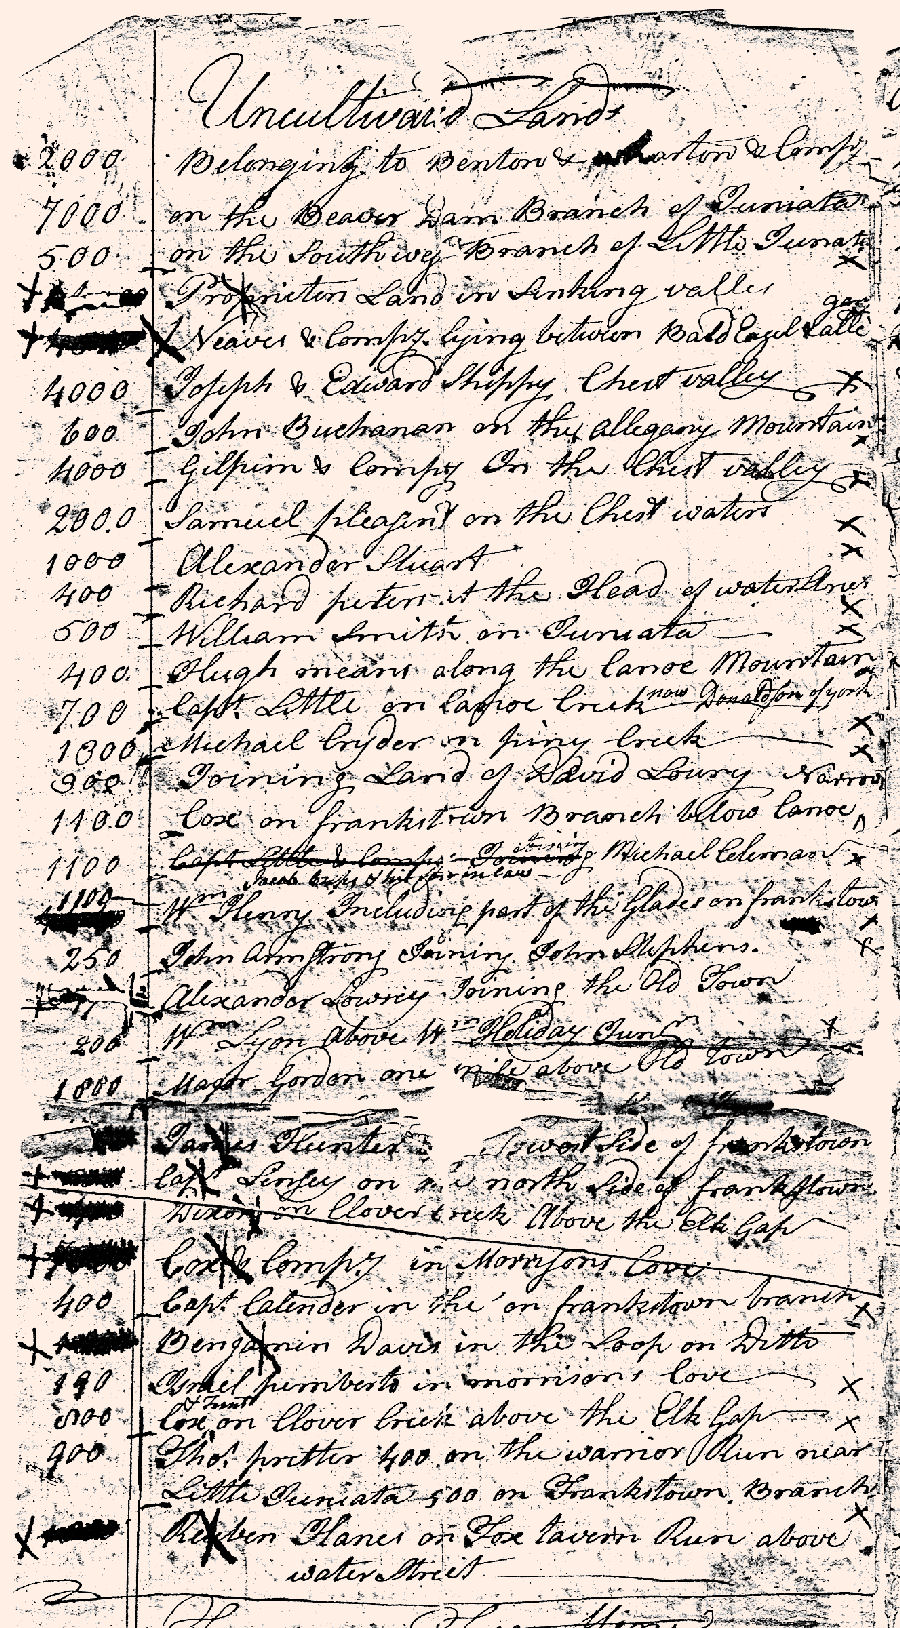 Uncultivaid Lands
2000 Belonging to Benton & wharton & Compy
7000 on the Beaver Dam Branch of Juniata
500 on the South wes Branch of Little Juniata
Proprieton Land in Sinking valley
gap
Neaves & Compy. lying between Bald Eagel & Latle
4000 Joseph & Edward Shippy Chest valley
600 John Buchanan on the Allegany Mountain
4000 Gilpim & Compy On the Chest valley
2000 Samuel pleasant on the Chest waters
1000 Alexander Stuart
400 Richard peters at the Head of water
500 William Smith on Juniata
400 Hugh means along the Canoe Mountain
700 Capt. Little on Canoe Creek now Donaldson of york
1300 Michael Cryder on piny Creek
300 Joining Land of David Loury Narrows
1100 Cox on frankstown Branch below Canoe
1100 Capt Little & Comps Joining Michael Coleman
Jacob Crips & his son in law
1100 Wm Henry Including part of the Glades on frankstown
250 John Armstrong Joining John Stephens.
Alexander Lowrey Joining the Old Town
200 Wm Lyon above Wm Holiday Junr
1000 Major Gordon one mile above Old Town
James Hunter Side of frankstown
Capt Linsey on the north Side of frankstown
Dixon on Clover creek Above the Elk Gap
Cox & Compy in Morrisons Cove
400 Capt. Calender in the on frankstown branch
Bengamin Davis in the Loop on Ditto
190 Israel pemberto in morrisons Cove
800 Cox on Clover Creek above the Elk Gap
900 Thos. pretter 400 on the warrior Run near
Little Juniata 500 on Frankstown Branch
Reuben Hanes on Fox tavern Run above
water Street